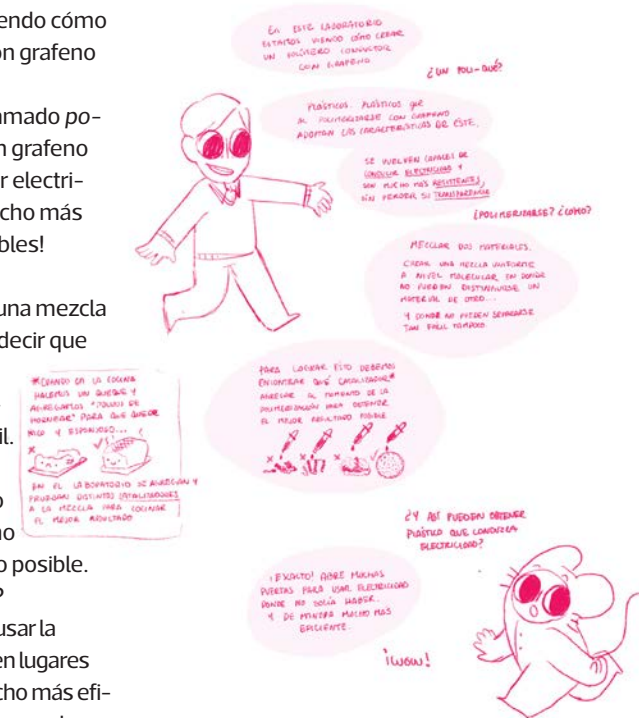 endo cómo
on grafeno
amado po-
n grafeno
r electri-
cho más
bles!
una mezcla
decir que
il.
o
no
o posible.
?
usar la
en lugares
cho más efi-
EN ESTE LABORATORIO
ESTAMOS VIENDO CÓMO CREAR
UN POLÍMERO CONDUCTOR
CON GRAFENO
¿UN POLI-QUÉ?
PLÁSTICOS. PLÁSTICOS QUE
AL POLIMERIZARSE CON GRAFENO
ADOPTAN LAS CARACTERÍSTICAS DE ÉSTE.
SE VUELVEN CAPACES DE
CONDUCIR ELECTRICIDAD Y
SON MUCHO MÁS RESISTENTES,
SIN PERDER SU TRANSPARENCIA
¿POLIMERIZARSE? ¿CÓMO?
MEZCLAR DOS MATERIALES.
CREAR UNA MEZCLA UNIFORME
A NIVEL MOLECULAR, EN DONDE
NO PUEDEN DISTINGUIRSE UN
MATERIAL DE OTRO...
Y DONDE NO PUEDEN SEPARARSE
TAN FÁCIL TAMPOCO.
PARA LOGRAR ESTO DEBEMOS
ENCONTRAR QUÉ CATALIZADOR*
AGREGAR AL MOMENTO DE LA
POLIMERIZACIÓN PARA OBTENER
EL MEJOR RESULTADO POSIBLE
*CUANDO EN LA COCINA
HACEMOS UN QUEQUE Y
AGREGAMOS "POLVOS DE
HORNEAR" PARA QUE QUEDE
RICO Y ESPONJOSO...
EN EL LABORATORIO SE AGREGAN Y
PRUEBAN DISTINTOS CATALIZADORES
A LA MEZCLA PARA COCINAR
EL MEJOR RESULTADO
¿Y ASÍ PUEDEN OBTENER
PLÁSTICO QUE CONDUZCA
ELECTRICIDAD?
¡EXACTO! ABRE MUCHAS
PUERTAS PARA USAR ELECTRICIDAD
DONDE NO SOLÍA HABER.
Y DE MANERA MUCHO MÁS
EFICIENTE.
¡WOW!